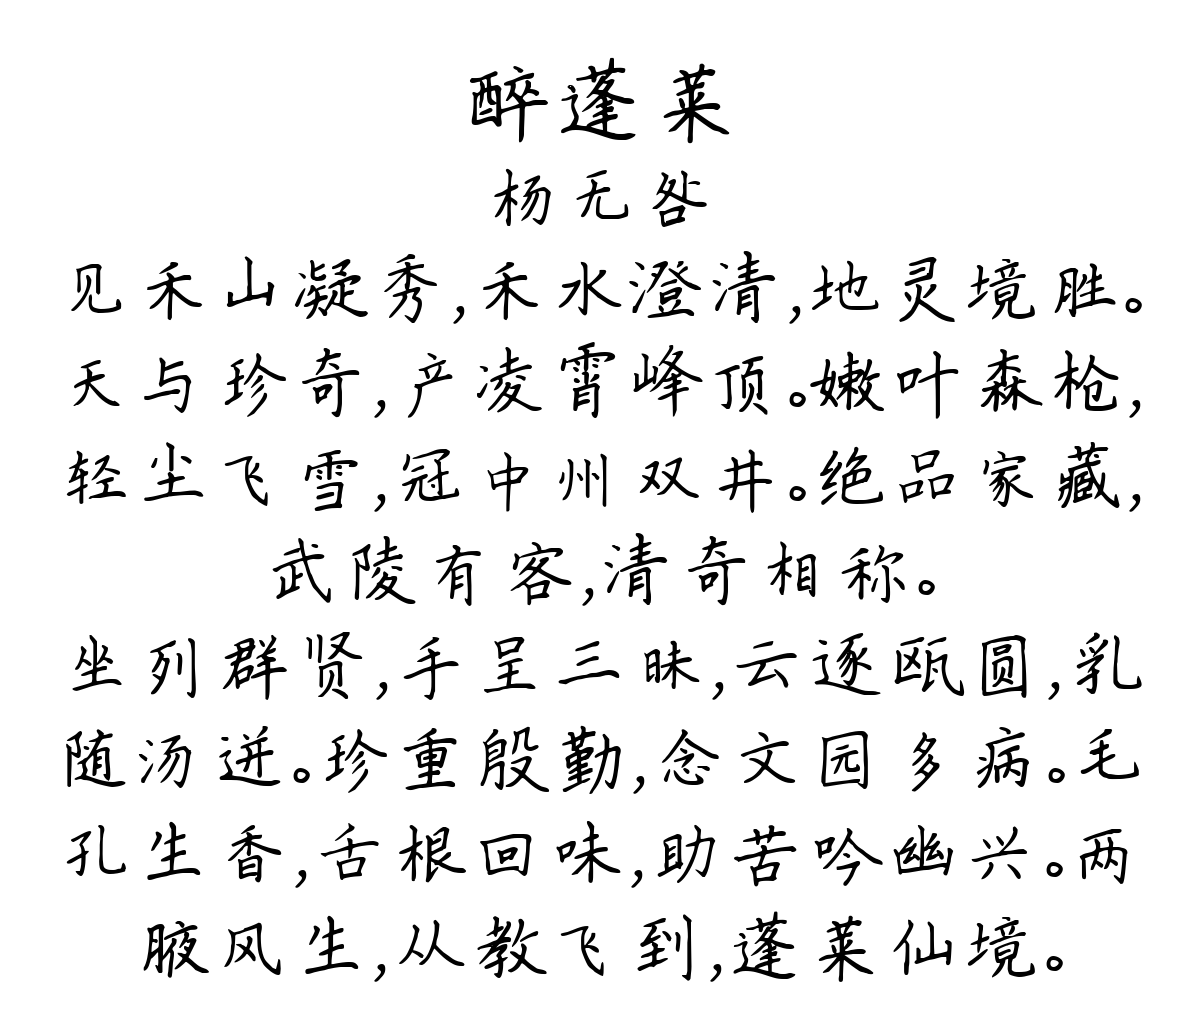 醉蓬莱
杨无咎
见禾山凝秀,禾水澄清,地灵境胜。
天与珍奇,产凌霄峰顶。嫩叶森枪,
轻尘飞雪,冠中州双井。绝品家藏,
武陵有客,清奇相称。
坐列群贤,手呈三昧,云逐瓯圆,乳
随汤迸。珍重殷勤,念文园多病。毛
孔生香,舌根回味,助苦吟幽兴。两
腋风生,从教飞到,蓬莱仙境。